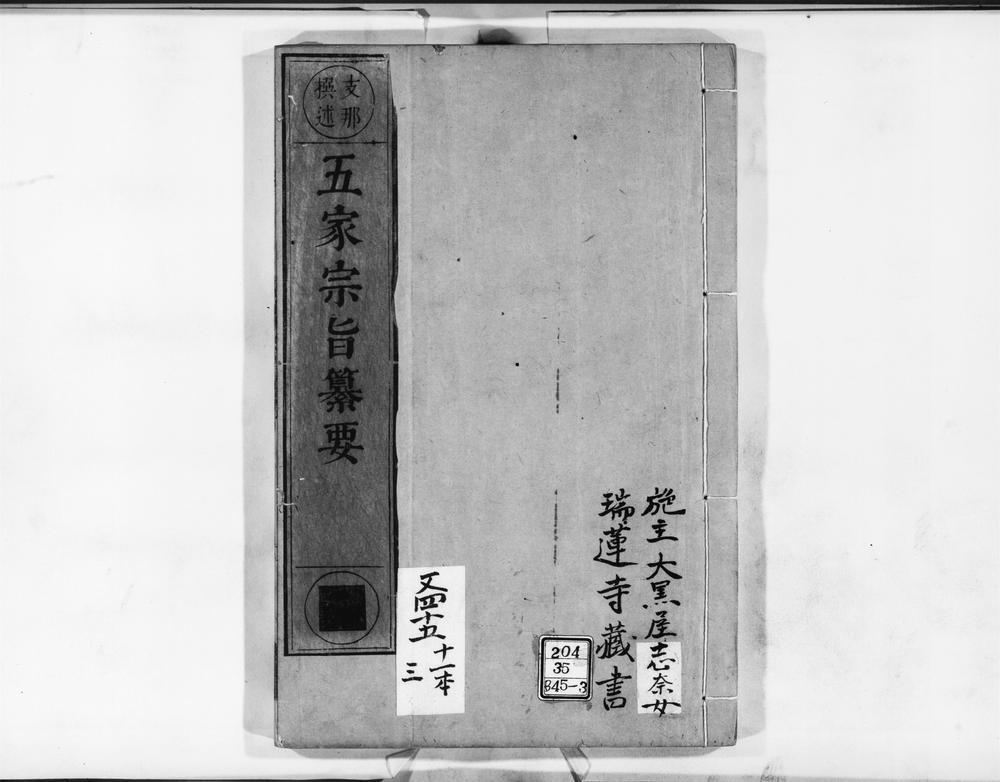 施主大黒屋志奈女
瑞蓮寺藏書
204
35
845-3
又四十五
十一本
三
支那
撰述
五家宗旨纂要